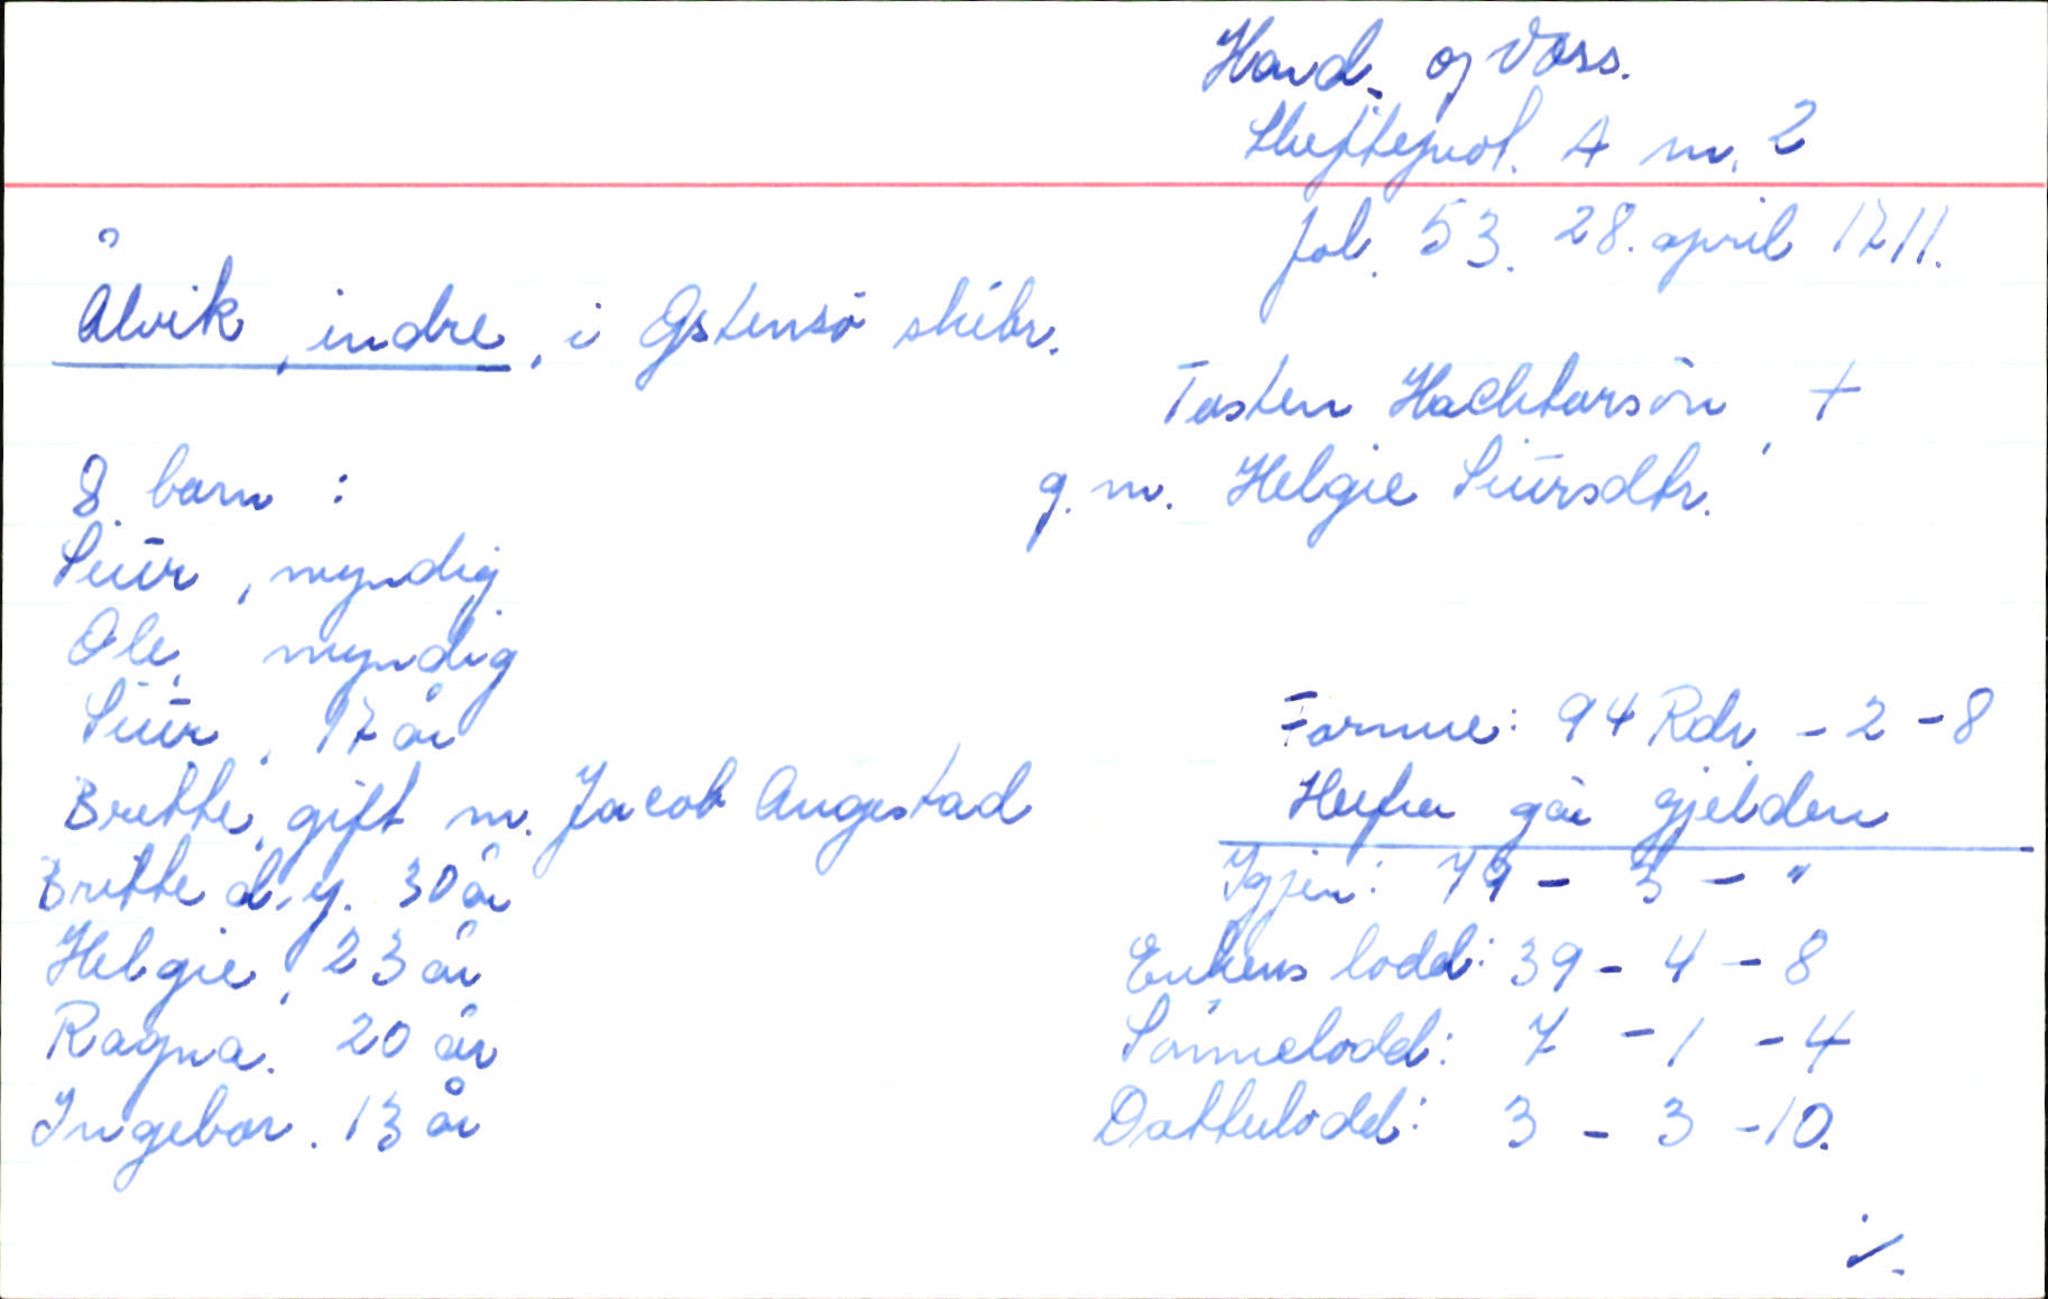 Hard. og Voss.
Skifteprot. A nr. 2
fol. 53. 28. april 1711.
Ålvik, indre, i Østensö skibr.
Tosten Hachtorsön, +
g. m. Helgie Siursdtr.
8 barn :
Siur, myndig
Ole, myndig
Siur, 17 år
Brette, gift m. Jacob Augestad
Britte d. y. 30 år
Helgie, 23 år
Ragna. 20 år
Ingebor. 13 år
Formue: 94 Rdr. - 2 - 8
Herfra går gjelden
Igjen: 79 - 3 - "
Enkens lodd: 39 - 4 - 8
Sönnelodd: 7 - 1 - 4
Datterlodd: 3 - 3 - 10.